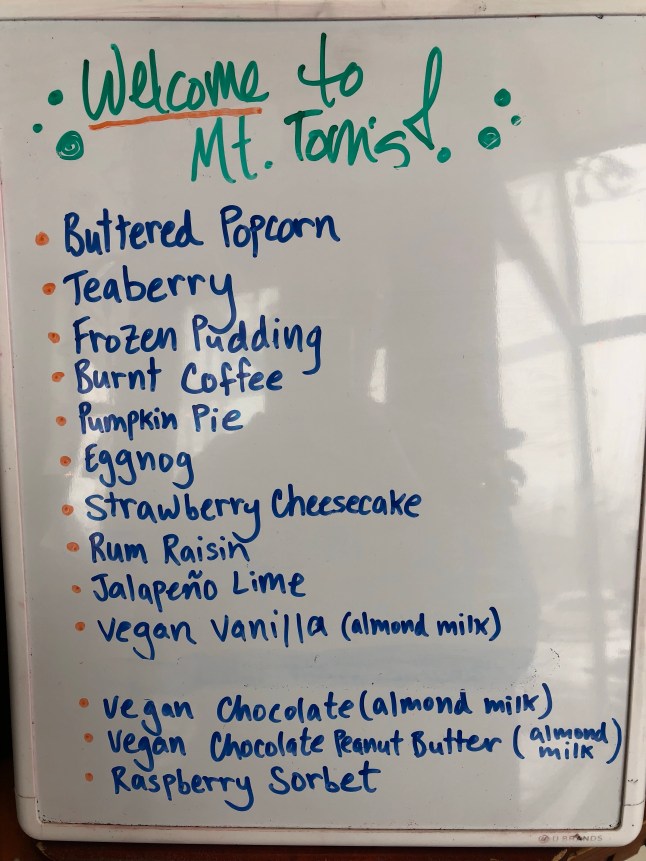 Welcome to
Mt. Tom's!
Buttered Popcorn
Teaberry
Frozen Pudding
Burnt Coffee
Pumpkin Pie
Eggnog
Strawberry Cheesecake
Rum Raisin
Jalapeño Lime
Vegan Vanilla (almond milk)
Vegan Chocolate (almond milk)
Vegan Chocolate Peanut Butter (almond milk)
Raspberry Sorbet
BRANDS